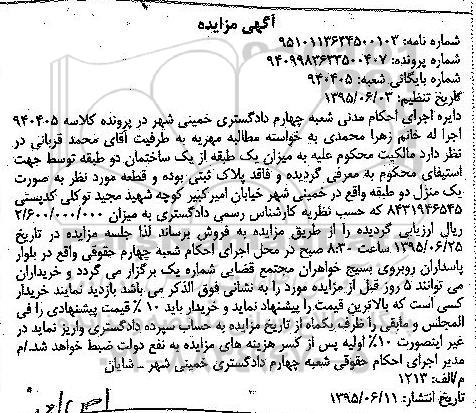 آگهی مزایده
شماره نامه: ۹۵۱۰۱۱۳۶۳۴۵۰۰۱۰۳
شماره پرونده: ۹۴۰۹۹۸۳۶۳۳۵۰۰۴۰۷
شماره بایگانی شعبه: ۹۴۰۴۰۵
تاریخ تنظیم: ۱۳۹۵/۰۶/۰۳
دایره اجرای احکام مدنی شعبه چهارم دادگستری خمینی شهر در پرونده کلاسه ۹۴۰۴۰۵
اجرا له خانم زهرا محمدی به خواسته مطالبه مهریه به طرفیت آقای محمد قربانی در
نظر دارد مالکیت محکوم علیه به میزان یک طبقه از یک ساختمان دو طبقه توسط جهت
استیفای محکوم به معرفی گردیده و فاقد پلاک ثبتی بوده و قطعه مورد نظر به صورت
یک منزل دو طبقه واقع در خمینی شهر خیابان امیرکبیر کوچه شهید مجید توکلی کدپستی
۸۴۳۱۹۴۶۵۴۵ که حسب نظریه کارشناس رسمی دادگستری به میزان ۲/۶۰۰/۰۰۰/۰۰۰
ریال ارزیابی گردیده را از طریق مزایده به فروش برساند لذا جلسه مزایده در تاریخ
۱۳۹۵/۰۶/۲۵ ساعت ۸:۳۰ صبح در محل اجرای احکام شعبه چهارم حقوقی واقع در بلوار
پاسداران روبروی بسیج خواهران مجتمع قضایی شماره یک برگزار می گردد و خریداران
می توانند ۵ روز قبل از مزایده مورد را به نشانی فوق الذکر می باشد بازدید نمایند خریدار
کسی است که بالاترین قیمت را پیشنهاد نماید و خریدار باید ۱۰ ٪ قیمت پیشنهادی را فی
المجلس و مابقی را ظرف یکماه از تاریخ مزایده به حساب سپرده دادگستری واریز نماید در
غیر اینصورت ۱۰٪ اولیه پس از کسر هزینه های مزایده به نفع دولت ضبط خواهد شد./م
مدیر اجرای احکام حقوقی شعبه چهارم دادگستری خمینی شهر ـ شایان
م/الف: ۱۲۱۳
تاریخ انتشار: ۱۳۹۵/۰۶/۱۱